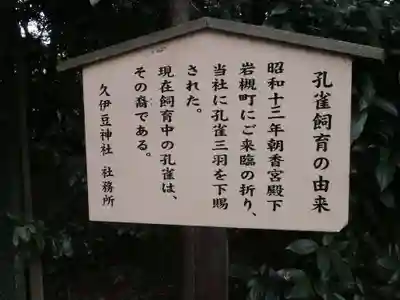 孔雀飼育の由来
昭和十三年朝香宮殿下
岩槻町にご来臨の折り、
当社に孔雀三羽を下賜
された。
現在飼育中の孔雀は、
その裔である。
久伊豆神社 社務所